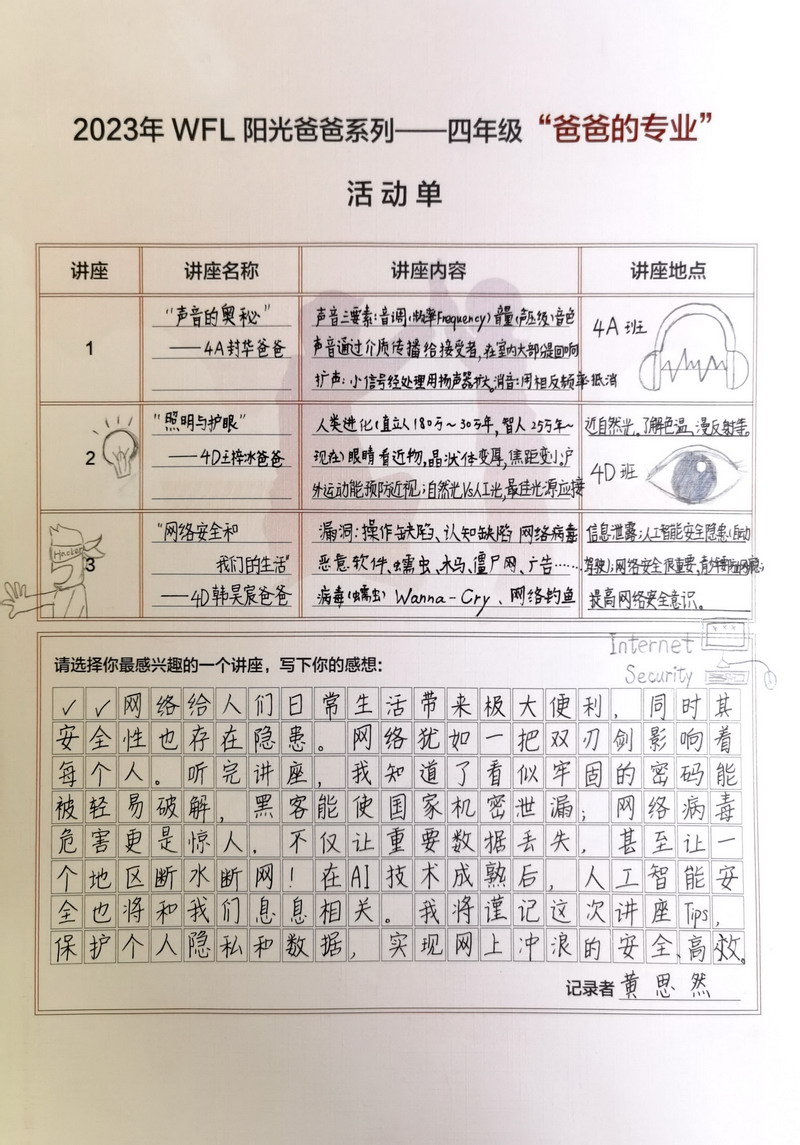 2023年 WFL 阳光爸爸系列——四年级 “爸爸的专业”
活动单
讲座 讲座名称 讲座内容 讲座地点
1
“声音的奥秘”
——4A封华爸爸
声音三要素：音调(频率Frequency) 音量(声压级) 音色
声音通过介质传播给接受者，在室内大部分是回响
扩声：小信号经处理用扬声器扩大。消音：用相反频率抵消
4A班
2
“照明与护眼”
——4D王梓冰爸爸
人类进化(直立人180万～30万年，智人25万年～
现在)眼睛看近物，晶状体变厚，焦距变小；户
外运动能预防近视；自然光Vs人工光，最佳光源应接
近自然光。了解色温、漫反射等。
4D班
3
Hacker
“网络安全和
我们的生活”
——4D韩昊宸爸爸
漏洞：操作缺陷、认知缺陷 网络病毒
恶意软件、蠕虫、木马、僵尸网、广告……
病毒(蠕虫) Wanna-Cry、网络钓鱼
信息泄露；人工智能安全隐患(自动
驾驶)；网络安全很重要，
提高网络安全意识。
Internet
Security
请选择你最感兴趣的一个讲座，写下你的感想：
✓✓网络给人们日常生活带来极大便利，同时其
安全性也存在隐患。网络犹如一把双刃剑影响着
每个人。听完讲座，我知道了看似牢固的密码能
被轻易破解，黑客能使国家机密泄漏；网络病毒
危害更是惊人，不仅让重要数据丢失，甚至让一
个地区断水断网！在AI技术成熟后，人工智能安
全也将和我们息息相关。我将谨记这次讲座Tips，
保护个人隐私和数据，实现网上冲浪的安全、高效。
记录者 黄思然